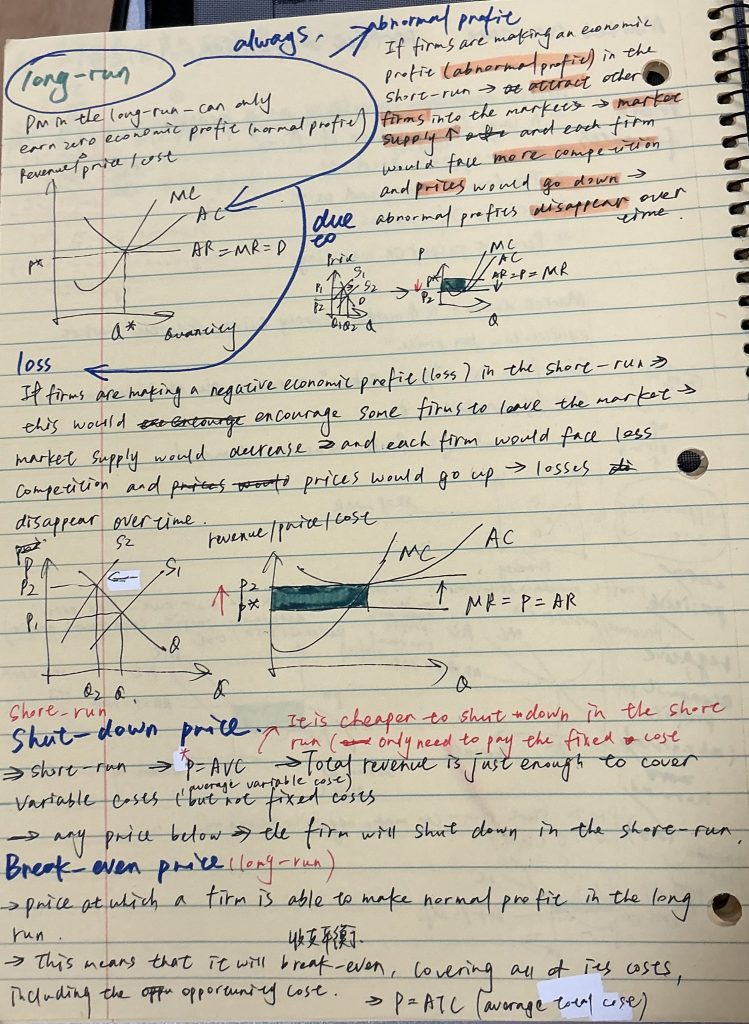 always.
abnormal profit
long-run
PM in the long-run - can only
earn zero economic profit (normal profit)
Revenue/price/cost
MC
AC
AR = MR = D
P*
Q*
Quantity
If firms are making an economic
profit (abnormal profit) in the
short-run → attract other
firms into the market → market
supply ↑ and each firm
would face more competition
and prices would go down →
abnormal profits disappear over
time.
due
to
Price
S1
S2
P1
P2
D
Q1 Q2 Q
→
P
MC
AC
P*
AR=P=MR
P2
Q
loss
If firms are making a negative economic profit (loss) in the short-run →
this would encourage some firms to leave the market →
market supply would decrease → and each firm would face less
competition and prices would go up → losses
disappear over time.
P
S2
S1
P2
P1
Q
Q2
Q
revenue/price/cost
MC
AC
P2
P*
MR = P = AR
Q
Short-run
Shut-down price.
It is cheaper to shut down in the short
run ( only need to pay the fixed cost
⇒ short-run → *P=AVC → Total revenue is just enough to cover
(average variable cost)
variable costs (but not fixed costs
→ any price below → the firm will shut down in the short-run.
Break-even price (long-run)
→ price at which a firm is able to make normal profit in the long
run.
收支平衡
→ This means that it will break-even, covering all of its costs,
including the opportunity cost. → P=ATC (average total cost)